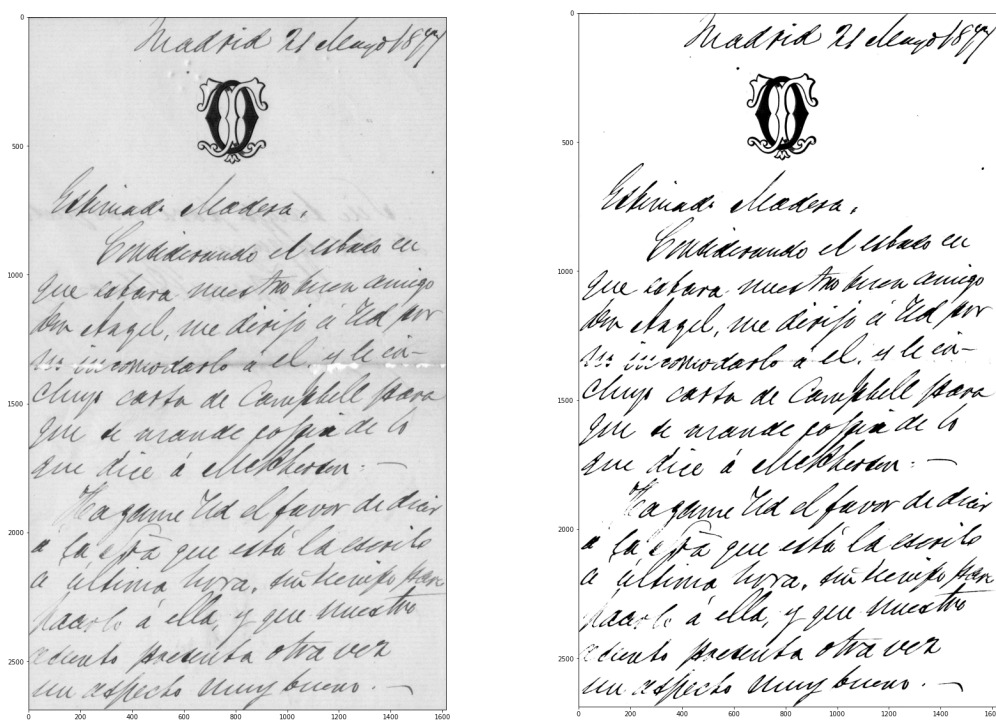 0
500
1000
1500
2000
2500
Madrid 21 Mayo 1897
Estimado Madera,
Considerando el estado en
que estara nuestro buen amigo
Don Angel, me dirijo á Ud por
no incomodarlo a el, y le in-
cluyo carta de Campbell para
que se mande copia de lo
que dice á McPherson. —
Hagame Ud el favor de decir
a la que está la escribo
a última hora, sin tiempo para
á ella, y que nuestro
asunto presenta otra vez
un aspecto muy bueno. —
0 200 400 600 800 1000 1200 1400 1600
0
500
1000
1500
2000
2500
Madrid 21 Mayo 1897
Estimado Madera,
Considerando el estado en
que estara nuestro buen amigo
Don Angel, me dirijo á Ud por
no incomodarlo a el, y le in-
cluyo carta de Campbell para
que se mande copia de lo
que dice á McPherson. —
Hagame Ud el favor de decir
a la que está la escribo
a última hora, sin tiempo para
á ella, y que nuestro
asunto presenta otra vez
un aspecto muy bueno. —
0 200 400 600 800 1000 1200 1400 1600